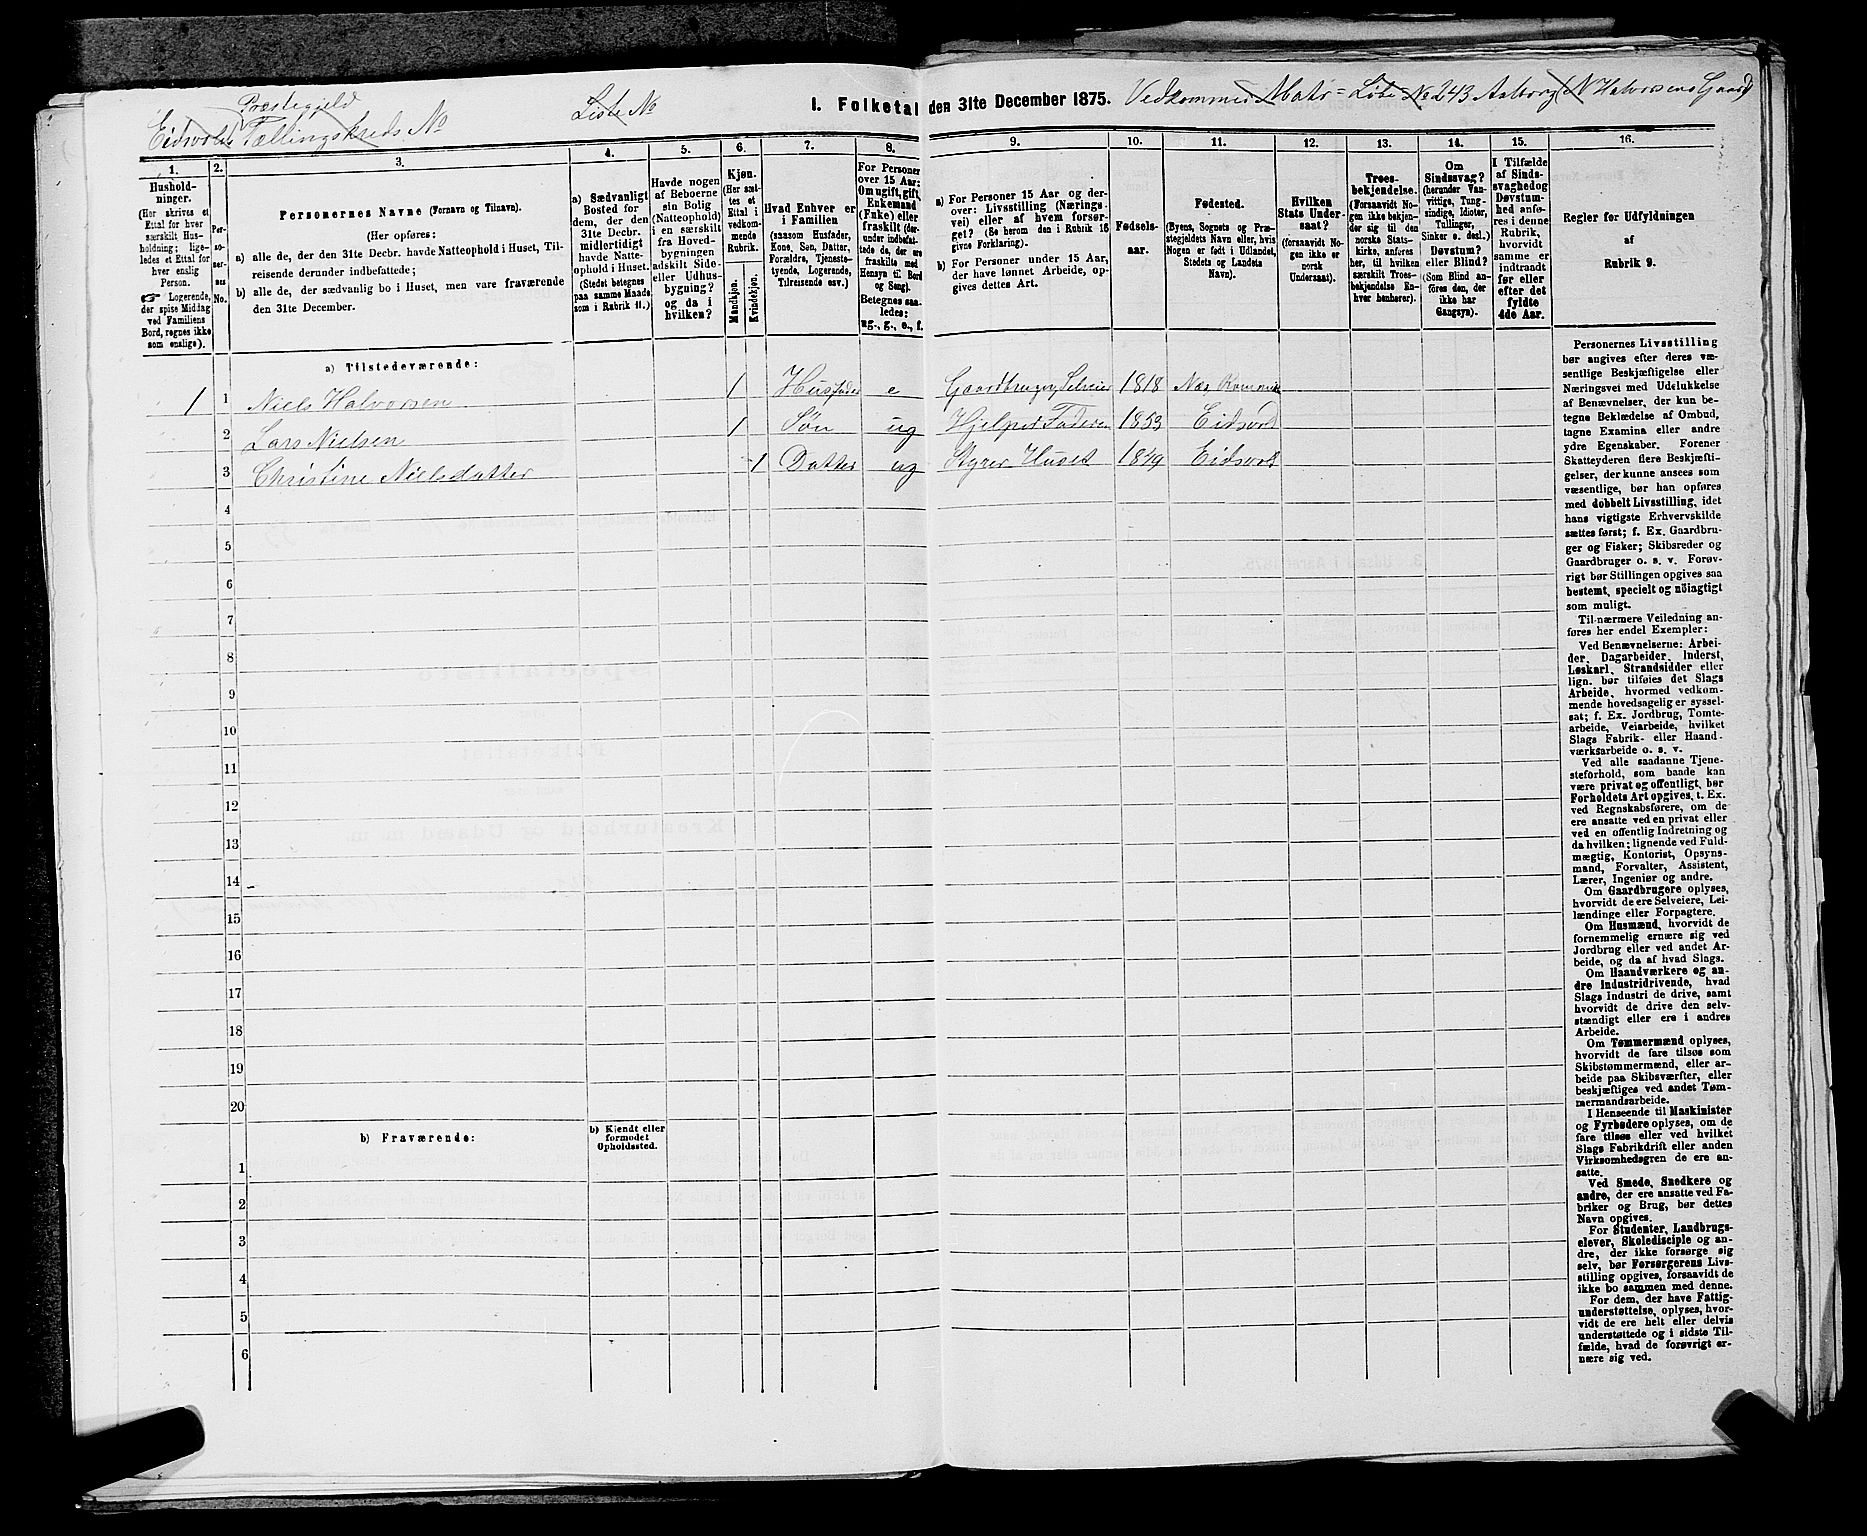 Præstegjeld
Eidsvold Tællingskreds No
Liste No
I. Folketal den 31te December 1875.
Vedkommer Matr = Løbe = No 243 Aalborg (N Halvorsens Gaard
1.
Hushold-
ninger.
(Her skrives et
Ettal for hver
særskilt Hus-
holdning; lige-
ledes et Ettal for
hver enslig
Person.
☞ Logerende,
der spise Middag
ved Familiens
Bord, regnes ikke
som enslige).
2.
Per-
so-
ner-
nes
No.
3.
Personernes Navne (Fornavn og Tilnavn).
(Her opføres:
a) alle de, der den 31te Decbr. havde Natteophold i Huset, Til-
reisende derunder indbefattede;
b) alle de, der sædvanlig bo i Huset, men vare fraværende
den 31te December.
4.
a) Sædvanligt
Bosted for
dem, der den
31te Decbr.
midlertidigt
havde Natte-
ophold i Huset.
(Stedet betegnes
paa samme Maade
som i Rubrik 11.)
5.
Havde nogen
af Beboerne
ein Bolig
(Natteophold)
i en særskilt
fra Hoved-
bygningen
adskilt Side-
eller Udhus-
bygning?
og da i
hvilken?
6.
Kjøn.
(Her sæt-
tes et
Ettal i
vedkom-
mende
Rubrik.
Mandkjøn.
Kvindekjøn.
7.
Hvad Enhver er
i Familien
(saasom Husfader,
Kone, Søn, Datter,
Forældre, Tjeneste-
tyende, Logerende,
Tilreisende osv.)
8.
For Personer
over 15 Aar:
Om ugift, gift,
Enkemand
(Enke) eller
fraskilt (der-
under indbefat-
tede de, der ere
fraskilte med
Hensyn til Bord
og Seng).
Betegnes saa-
ledes:
ug., g., e., f.
9.
a) For Personer 15 Aar og der-
over: Livsstilling (Nærings-
vei) eller af hvem forsør-
get? (Se herom den i Rubrik 16
givne Forklaring).
b) For Personer under 15 Aar,
der have lønnet Arbeide, op-
gives dettes Art.
10.
Fødsels-
aar.
11.
Fødested.
(Byens, Sognets og Præ-
stegjeldets Navn eller, hvis
Nogen er født i Udlandet,
Stedets og Landets
Navn).
12.
Hvilken
Stats Under-
saat?
(forsaavidt No-
gen ikke er
norsk
Undersaat).
13.
Troes-
bekjendelse.
(Forsaavidt No-
gen ikke bekjen-
der sig til den
norske Stats-
kirke, anføres
her, til hvilken
særskilt Troes-
bekjendelse En-
hver henhører).
14.
Om
Sindssvag?
(herunder Van-
vittige, Tung-
sindige, Idioter,
Tullinger,
Sinker o. desl.)
Døvstum?
eller Blind?
(Som Blind an-
føres den, der
ikke har
Gangsyn).
15.
I Tilfælde
af Sinds-
svaghed og
Døvstum-
hed anfø-
res i denne
Rubrik,
hvorvidt
samme er
indtraadt
før eller
efter det
fyldte
4de Aar.
16.
Regler for Udfyldningen
af
Rubrik 9.
a) Tilstedeværende:
1 1 Niels Halvorsen 1 Husfader e Gaardbruger, Selveier 1818 Næs
2 Lars Nielsen 1 Søn ug Hjelper Faderen 1853 Eidsvold
3 Christine Nielsdatter 1 Datter ug Styrer Huset 1849 Eidsvold
4
5
6
7
8
9
10
11
12
13
14
15
16
17
18
19
20
b) Fraværende:
b) Kjendt eller
formodet
Opholdssted.
1
2
3
4
5
6
Personernes Livsstilling
bør angives efter deres væ-
sentlige Beskjæftigelse eller
Næringsvei med Udelukkelse
af Benævnelser, der kun be-
tegne Beklædelse af Ombud,
tagne Examina eller andre
ydre Egenskaber. Forener
Skatteyderen flere Beskjæfti-
gelser, der kunne ansees som
væsentlige, bør han opføres
med dobbelt Livsstilling, idet
hans vigtigste Erhvervskilde
sættes først; f. Ex. Gaardbru-
ger og Fisker; Skibsreder og
Gaardbruger o. s. v. Forøv-
rigt bør Stillingen opgives saa
bestemt, specielt og nöiagtigt
som muligt.
Til nærmere Veiledning an-
føres her endel Exempler:
Ved Benævnelserne: Arbei-
der, Dagarbeider, Inderst,
Løskarl, Strandsidder eller
lign. bør tilføies det Slags
Arbeide, hvormed vedkom-
mende hovedsagelig er syssel-
sat; f. Ex. Jordbrug, Tomte-
arbeide, Veiarbeide, hvilket
Slags Fabrik- eller Haand-
værksarbeide o. s. v.
Ved alle saadanne Tjene-
steforhold, som baade kan
være privat og offentligt, bør
Forholdets Art opgives, t. Ex.
ved Regnskabsførere, om de
ere ansatte ved en privat eller
ved en offentlig Indretning og
da hvilken; lignende ved Fuld-
mægtig, Kontorist, Opsyns-
mand, Forvalter, Assistent,
Lærer, Ingeniør og andre.
Om Gaardbrugere oplyses,
hvorvidt de ere Selveiere, Lei-
lændinge eller Forpagtere.
Om Husmænd, hvorvidt de
fornemmelig ernære sig ved
Jordbrug eller ved andet Ar-
beide, og da af hvad Slags.
Om Haandværkere og an-
dre Industridrivende, hvad
Slags Industri de drive, samt
hvorvidt de drive den selv-
stændigt eller ere i andres
Arbeide.
Om Tømmermænd oplyses,
hvorvidt de fare tilsøs som
Skibstømmermænd, eller ar-
beide paa Skibsværfter, eller
beskjæftiges ved andet Tøm-
mermandsarbeide.
I Henseende til Maskinister
og Fyrbødere oplyses, om de
fare tilsøs eller ved hvilket
Slags Fabrikdrift eller anden
Virksomhedsgren de ere an-
satte.
Ved Smede, Snedkere og
andre, der ere ansatte ved Fa-
briker og Brug, bør dettes
Navn opgives.
For Studenter, Landbrugs-
elever, Skoledisciple og an-
dre, der ikke forsørge sig
selv, bør Forsørgerens Livs-
stilling opgives, forsaavidt de
ikke bo sammen med denne.
For dem, der have Fattig-
understøttelse, oplyses, hvor-
vidt de ere helt eller delvis
understøttede og i sidste Til-
fælde, hvad de forøvrigt er-
nære sig ved.